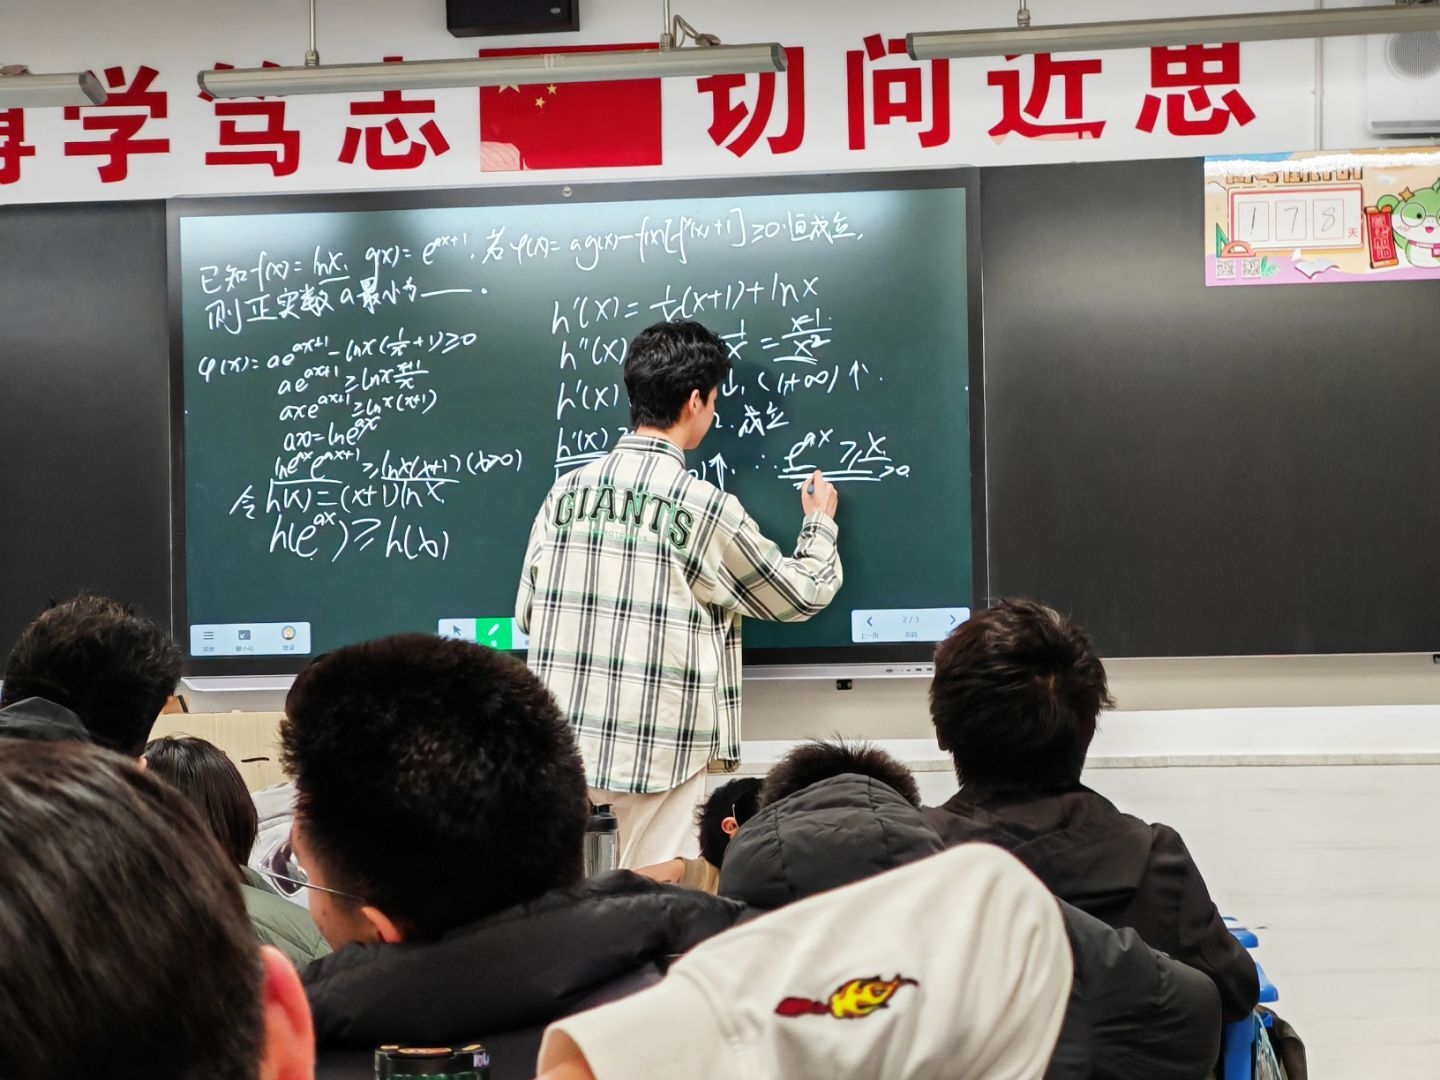 学笃志 切问近思
178
天
已知f(x)=lnx, g(x)=e^{ax+1}, 若φ(x)=ag(x)-f(x)[f'(x)+1]≥0恒成立,
则正实数a最小为___.
φ(x)=ae^{ax+1}-lnx(1/x+1)≥0
ae^{ax+1}≥lnx (x+1)/x
axe^{ax+1}≥lnx(x+1)
ax=lne^{ax}
lne^{ax}e^{ax+1}≥lnx(x+1)(x>0)
令h(x)=(x+1)lnx
h(e^{ax})≥h(x)
h'(x)=1/x(x+1)+lnx
h''(x) 1/x = (x-1)/x²
h'(x) ↓, (1,+∞)↑.
h'(x)≥ 2. 成立
)↑. ∴ e^{ax}≥x.
>0
GIANTS
2/3
上一页 页码
菜单 最小化 登录